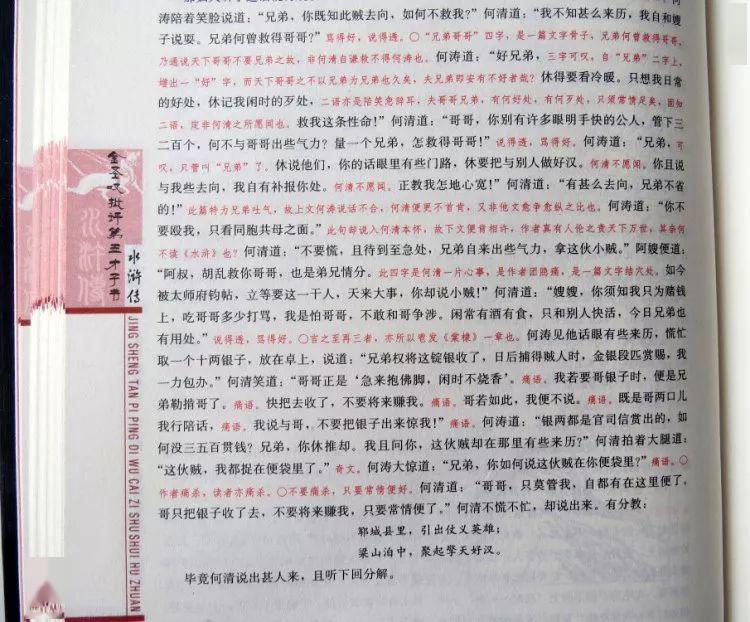 涛陪着笑脸说道：“兄弟，你既知此贼去向，如何不救我？”何清道：“我不知甚么来历，我自和嫂
子说耍。兄弟何曾救得哥哥？”骂得好，说得透。〇“兄弟哥哥”四字，是一篇文字骨子，兄弟何曾救得哥哥，
乃通说天下哥哥不要兄弟之故，非何清自谦救不得何涛也。何涛道：“好兄弟，三字可叹，自“兄弟”二字上，
增出一“好”字，而天下哥哥之不以兄弟为兄弟也久矣，夫兄弟即安有不好者哉？休得要看冷暖。只想我日常
的好处，休记我闲时的歹处，二语亦是陪笑急辞耳，夫哥哥兄弟，有何好处，有何歹处，只须常情足矣，固知
二语，定非何清之所愿闻也。救我这条性命！”何清道：“哥哥，你别有许多眼明手快的公人，管下三
二百个，何不与哥哥出些气力？量一个兄弟，怎救得哥哥！”说得透，骂得好。何涛道：“兄弟，可
叹，只管叫“兄弟”了。休说他们，你的话眼里有些门路，休要把与别人做好汉。何清不愿闻。你且说
与我些去向，我自有补报你处。何清不愿闻。正教我怎地心宽！”何清道：“有甚么去向，兄弟不省
的！”此篇特力兄弟吐气，故上文何涛说话不合，何清便更不首肯，又非他文愈争愈纵之比也。何涛道：“你不
要殴我，只看同胞共母之面。”此句却说入何清本怀，故下文便肯相许，作者真有人伦之责天下万世，其奈何
不读《水浒》也？何清道：“不要慌，且待到至急处，兄弟自来出些气力，拿这伙小贼。”阿嫂便道：
“阿叔，胡乱救你哥哥，也是弟兄情分。此四字是何清一片心事，是作者团隐痛，是一篇文字结穴处。如今
被太师府钧帖，立等要这一干人，天来大事，你却说小贼！”何清道：“嫂嫂，你须知我只为赌钱
上，吃哥哥多少打骂，我是怕哥哥，不敢和哥争涉。闲常有酒有食，只和别人快活，今日兄弟也
有用处。”说得透，骂得好。〇言之至再三者，亦所以卷发《棠棣》一章也。何涛见他话眼有些来历，慌忙
取一个十两银子，放在卓上，说道：“兄弟权将这锭银收了，日后捕得贼人时，金银段匹赏赐，我
一力包办。”何清笑道：“哥哥正是‘急来抱佛脚，闲时不烧香’。痛语。我若要哥银子时，便是兄
弟勒掯哥了。痛语。快把去收了，不要将来赚我。痛语。哥若如此，我便不说。痛语。既是哥两口儿
我行陪话，痛语。我说与哥，不要把银子出来惊我！”痛语。何涛道：“银两都是官司信赏出的，如
何没三五百贯钱？兄弟，你休推却。我且问你，这伙贼却在那里有些来历？”何清拍着大腿道：
“这伙贼，我都捉在便袋里了。”奇文。何涛大惊道：“兄弟，你如何说这伙贼在你便袋里？”痛语。〇
作者痛杀，读者亦痛杀。〇不要痛杀，只要常情便好。何清道：“哥哥，只莫管我，自都有在这里便了，
哥只把银子收了去，不要将来赚我，只要常情便了。”何清不慌不忙，却说出来。有分教：
郓城县里，引出仗义英雄；
梁山泊中，聚起擎天好汉。
毕竟何清说出甚人来，且听下回分解。
金圣叹批评第五才子书
水浒传
水浒传
JING SHENG TAN PI PING DI WU CAI ZI SHU SHUI HU ZHUAN